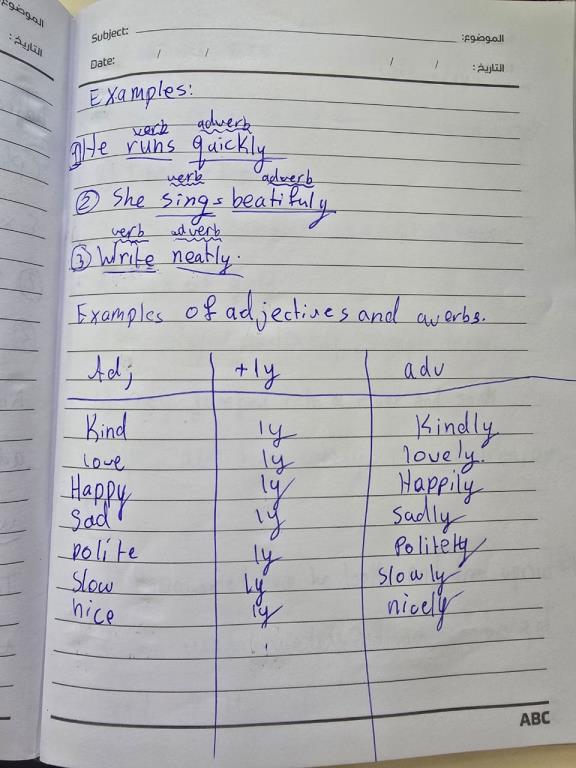 الموضوع:
التاريخ:
Subject: الموضوع:
Date: / / / / التاريخ:
Examples:
verb adverb
① He runs quickly
verb adverb
② She sings beatifuly
verb adverb
③ Write neatly.
Examples of adjectives and averbs.
Adj +ly adv
Kind ly Kindly
love ly lovely.
Happy ly Happily
Sad ly Sadly
polite ly Politely
Slow ly Slowly
nice ly nicely
ABC